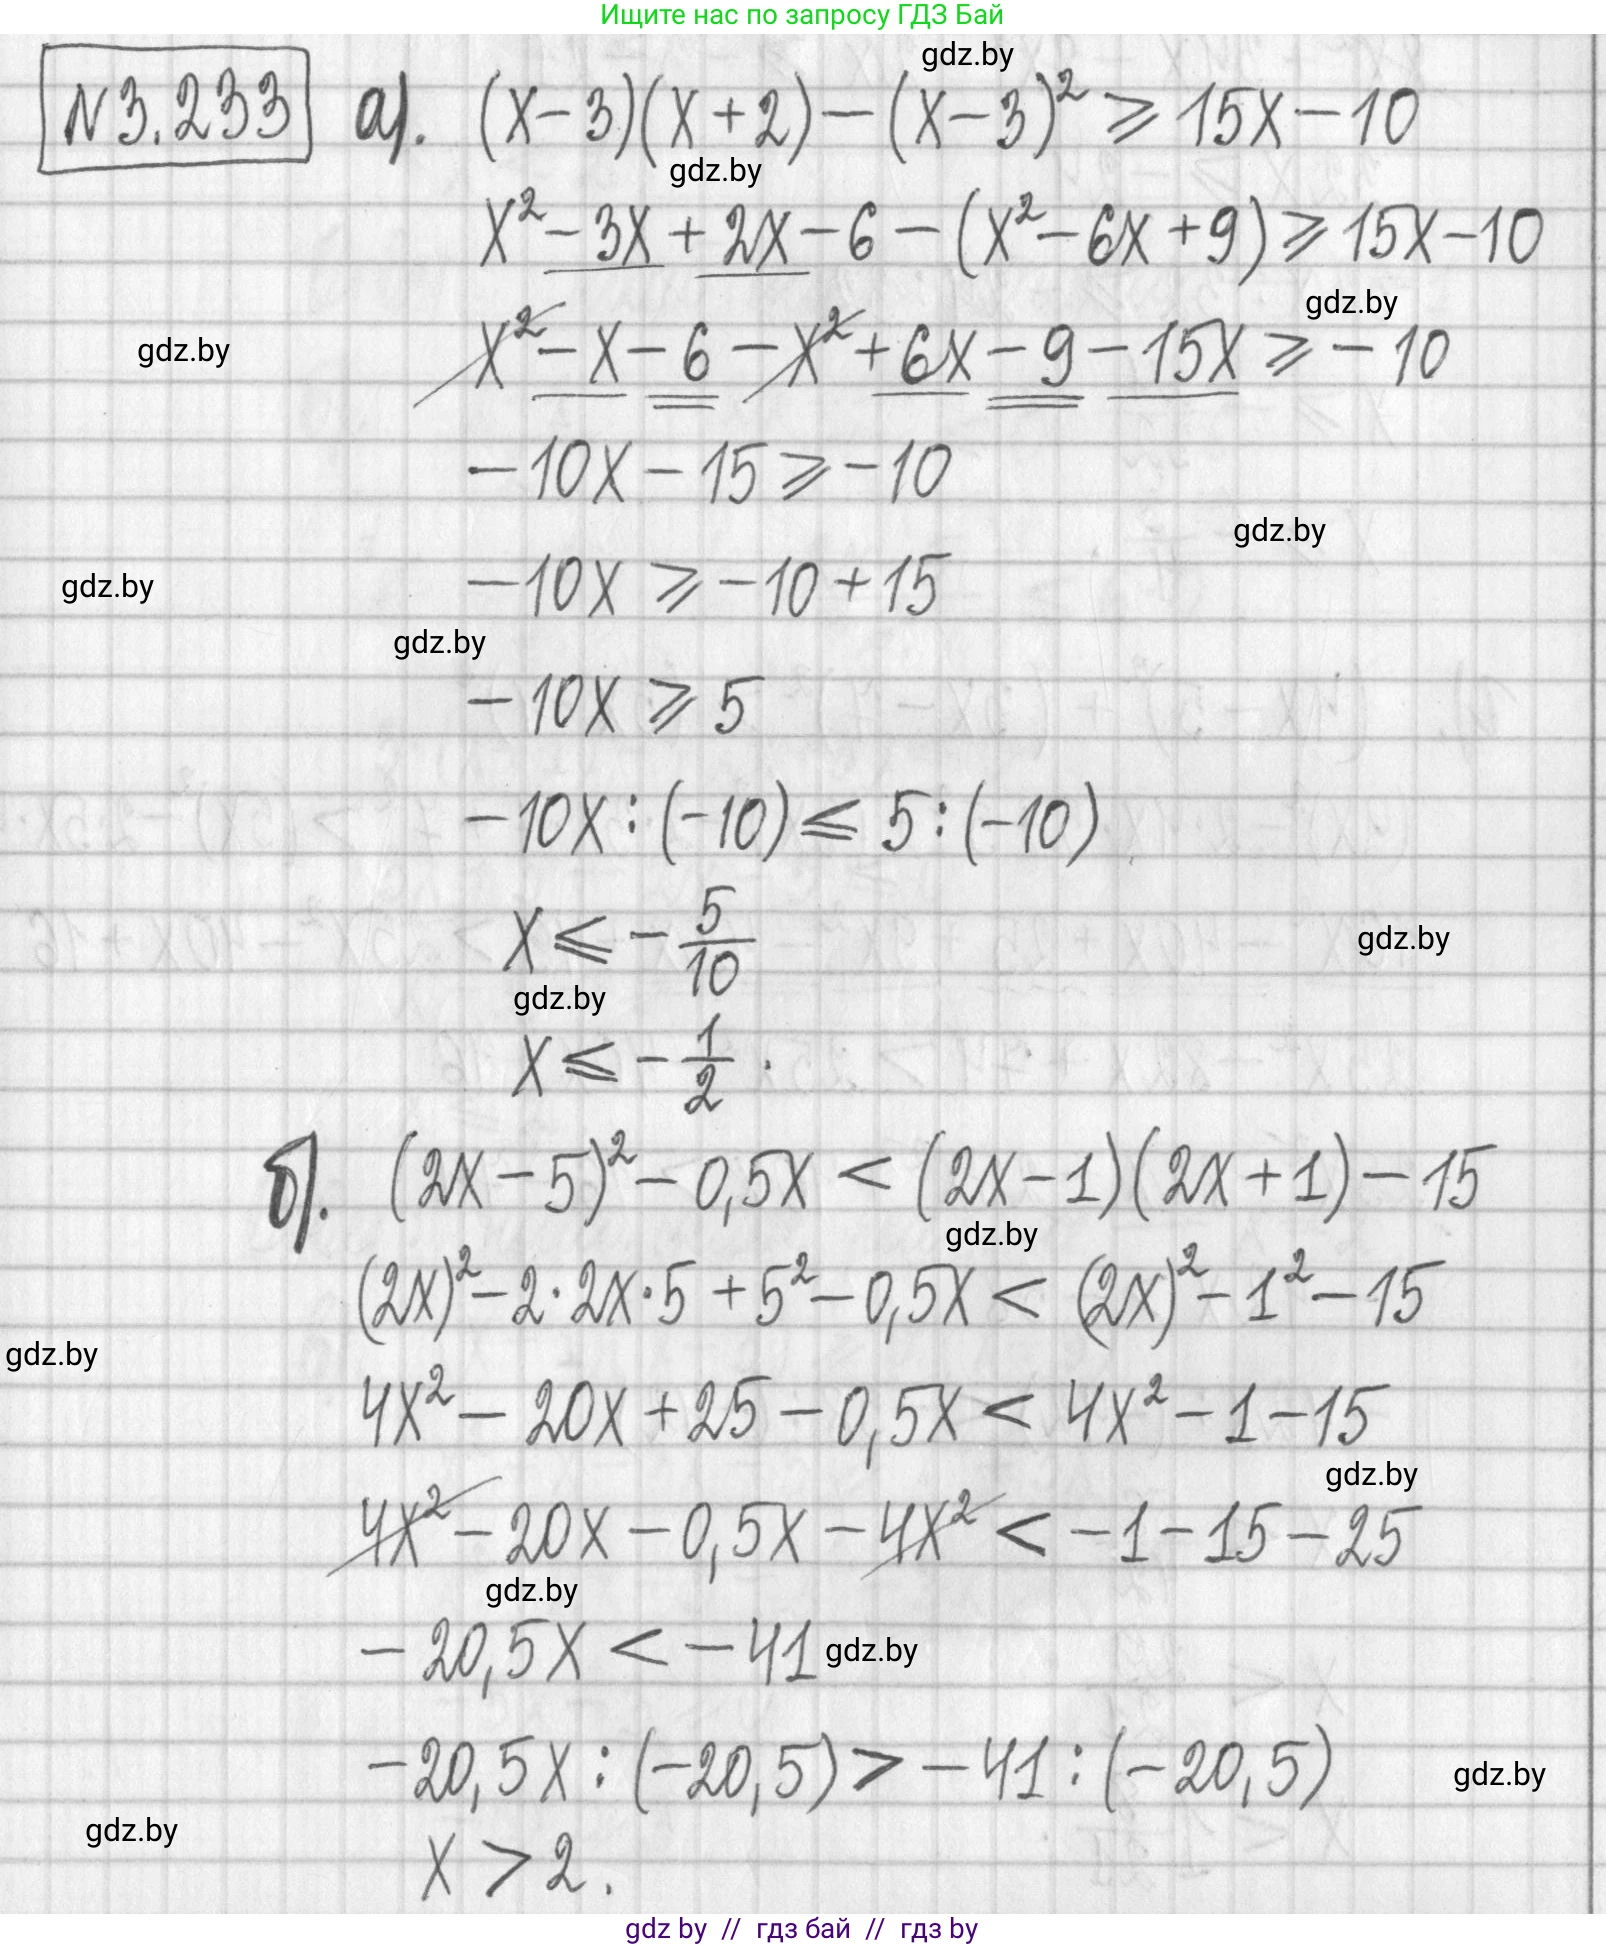 Ищите нас по запросу ГДЗ Бай
gdz.by
N3.233 а). (x-3)(x+2)-(x-3)²⩾15x-10
gdz.by
x²-3x+2x-6-(x²-6x+9)⩾15x-10
gdz.by
gdz.by
x²-x-6-x²+6x-9-15x⩾-10
-10x-15⩾-10
gdz.by
gdz.by
-10x⩾-10+15
gdz.by
-10x⩾5
-10x:(-10)⩽5:(-10)
x⩽-5/10
gdz.by
gdz.by
x⩽-1/2.
б). (2x-5)²-0,5x<(2x-1)(2x+1)-15
gdz.by
(2x)²-2·2x·5+5²-0,5x<(2x)²-1²-15
gdz.by
4x²-20x+25-0,5x<4x²-1-15
gdz.by
4x²-20x-0,5x-4x²<-1-15-25
gdz.by
-20,5x<-41
gdz.by
-20,5x:(-20,5)>-41:(-20,5)
gdz.by
gdz.by
x>2.
gdz by // гдз бай // гдз by